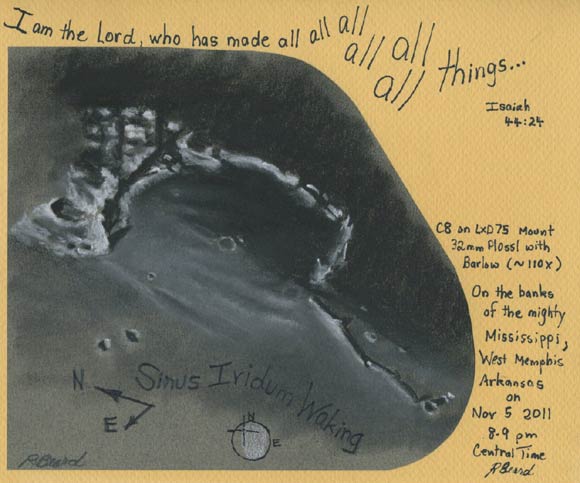 I am the Lord, who has made all all all
all all
all things...
Isaiah
44:24
C8 on LXD75 Mount
32mm Plossl with
Barlow (~110x)
On the banks
of the mighty
Mississippi,
West Memphis
Arkansas
on
Nov 5 2011
8-9 pm
Central Time
RBeard
Sinus Iridum Waking
N
E
N
E
RBeard